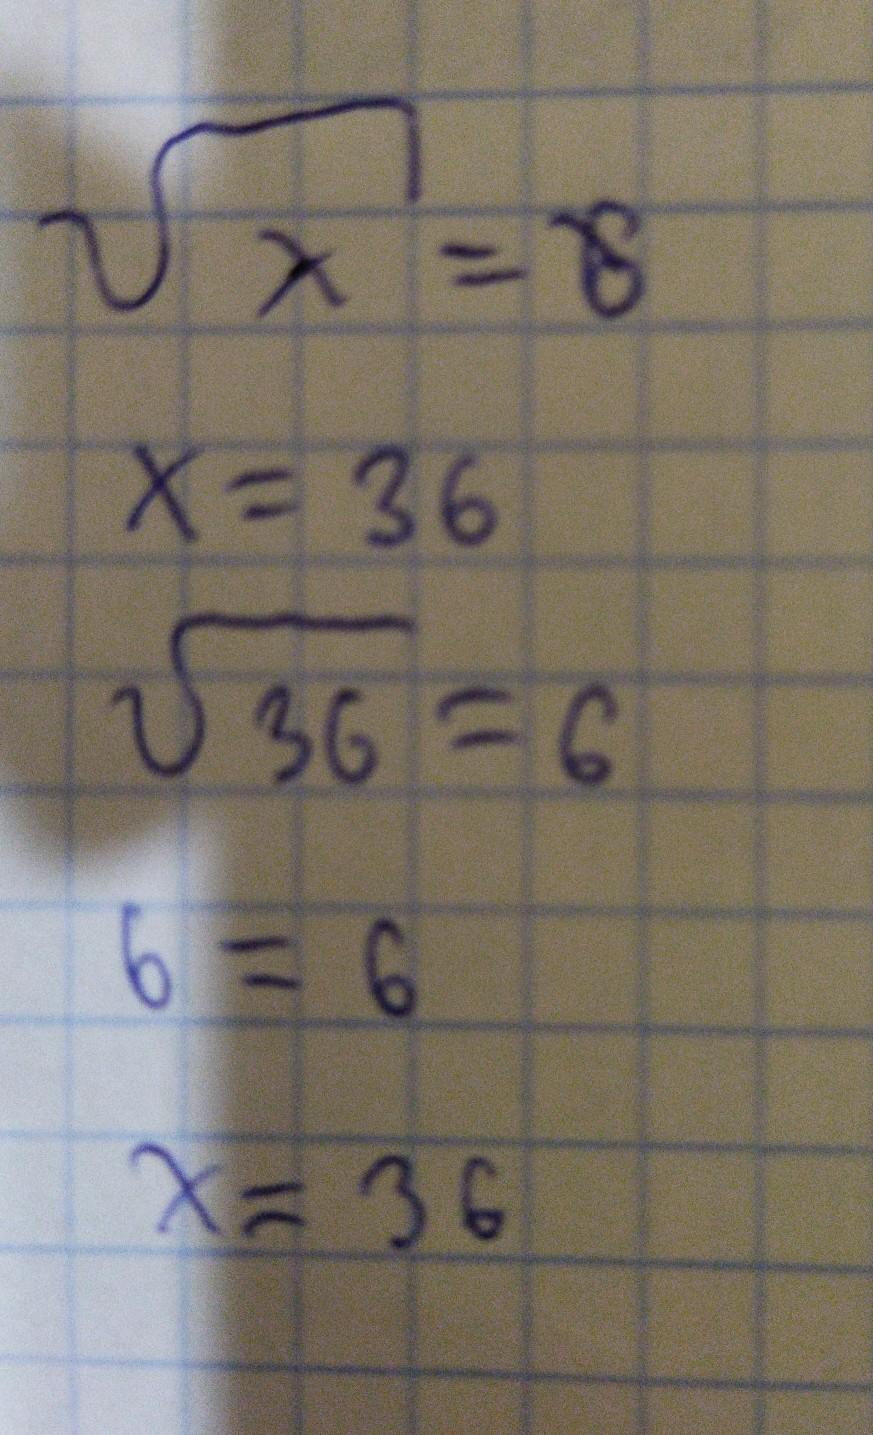 √x = 8
x = 36
√36 = 6
6 = 6
x = 36